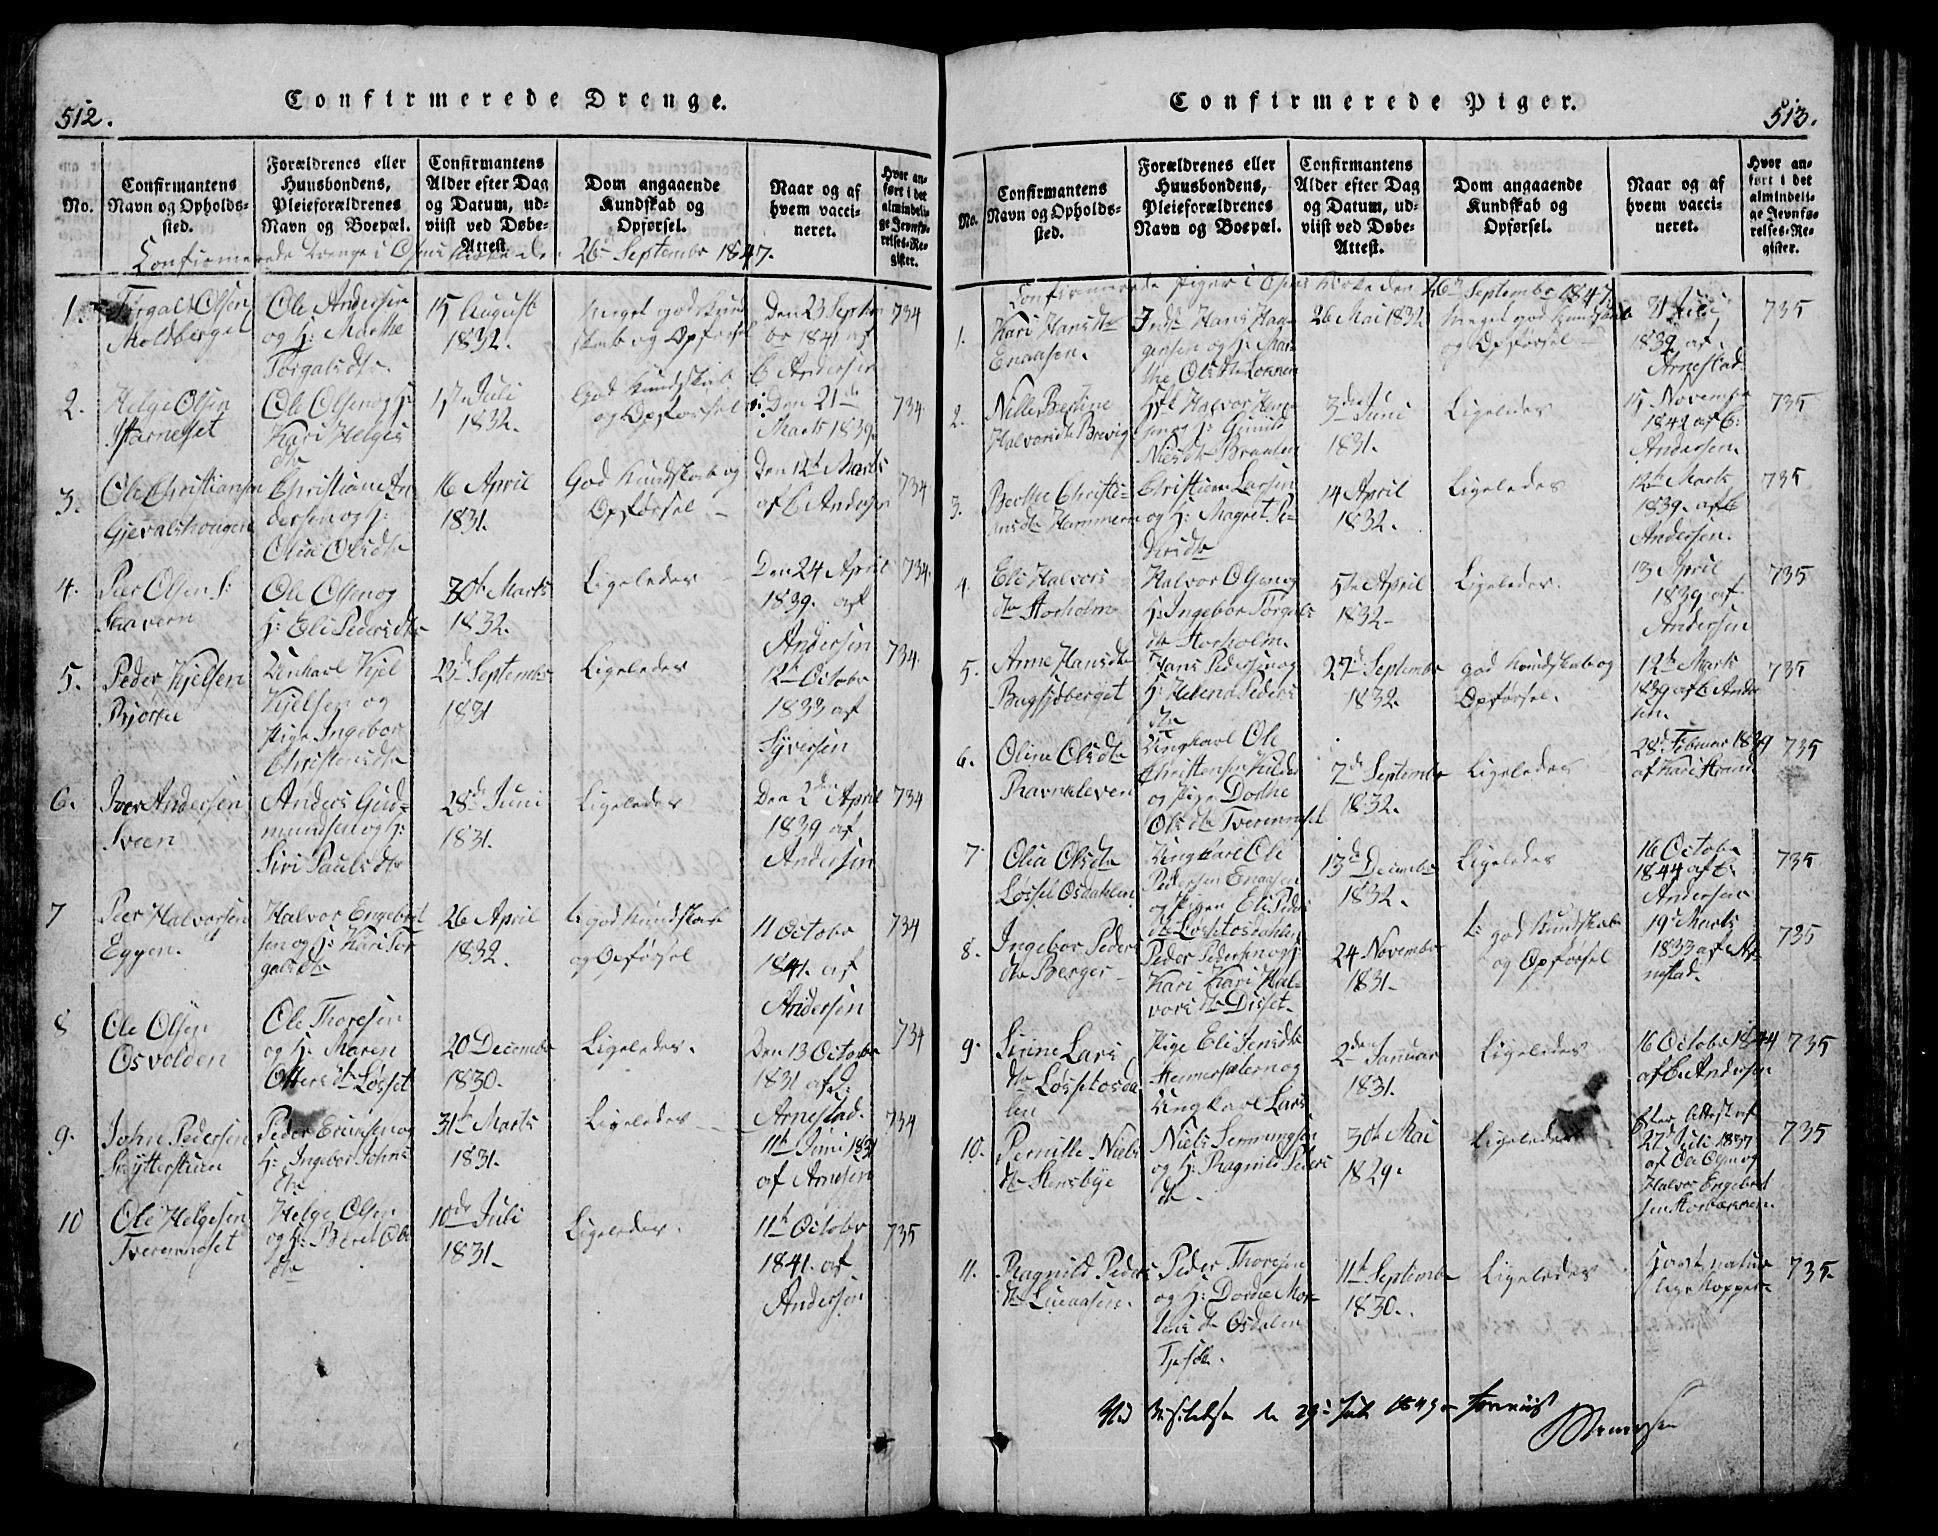 512.
Confirmerede Drenge.
No.
Confirmantens
Navn og Opholds-
sted.
Forældrenes eller
Huusbondens,
Pleieforældrenes
Navn og Boepæl.
Confirmantens
Alder efter Dag
og Datum, ud-
viist ved Døbe-
Attest.
Dom angaaende
Kundskab og
Opførsel.
Naar og af
hvem vacci-
neret.
Hvor an-
ført i det
almindeli-
ge Jevnfø-
relses-Re-
gister.
Confirmerede Drenge i Kirke den 26 September 1847.
1.
Olsen
Moldberget
Ole Andersen
og H: Marthe
Torgalsdtr
15 August
1832.
Meget god Kund
skab og Opførsel
Den 23 Septem
br 1841 af
C Andersen
734
2.
Helge Olsen
Ole Olsen og H:
Kari Helges
dtr
Juli
1832.
God Kundskab
og Opførsel
Den 21de
Marts 1839.
734
3.
Ole Christiansen
Christian An
dersen og H:
Olsdtr
16 April
1831.
God Kundskab og
Opførsel
Den 12te Marts
af C Andersen
734
4.
Peer Olsen
Ole Olsen og
H: Eli Pedersdtr
30te Marts
1832.
Ligeledes
Den 24 April
1839. af
Andersen
734.
5.
Peder Kjelsen
Ungkarl Kjel
Kjelsen og
Pige Ingebor
Christensdtr
23de September
1831
Ligeledes
12te October
1833 af
Syversen
734
6.
Iver Andersen
Sveen
Anders Gud-
mundsen og H:
Siri Paulsdtr
28de Juni
1831.
Ligeledes
Den 2den April
1839 af
Andersen
734
7
Peer Halvorsen
Eggen.
Halvor Engebret
sen og H: Kari Tor
galsdtr
26 April
1832.
god Kundskab
og Opførsel
11 October
1841. af
Andersen
734
8
Ole Olsen
Osvolden
Ole Thoresen
og H: Maren
Løsset
20 December
1830.
Ligeledes.
Den 13 October
1831 af
Arnestad.
734
9.
John Pedersen
Peder og
H: Ingebor Johns
dtr
31te Marts
1831.
Ligeledes
11te Juni 1831
af
734
10
Ole Helgesen
Helge Olsen
og H: Beret Ols
dtr
10de Juli
1831
Ligeledes.
11te October
1841. af
Andersen
735
513.
Confirmerede Piger.
No.
Confirmantens
Navn og Opholds-
sted.
Forældrenes eller
Huusbondens,
Pleieforældrenes
Navn og Boepæl.
Confirmantens
Alder efter Dag
og Datum, ud-
viist ved Døbe-
Attest.
Dom angaaende
Kundskab og
Opførsel.
Naar og af
hvem vacci-
neret.
Hvor an-
ført i det
almindeli-
ge Jevnfø-
relses-Re-
gister.
Confirmerede Piger i Kirke den 26de September 1847.
1.
Kari Hansdtr
Enaasen.
Hans Haa-
gensen og H: Mar-
the Olsdtr
26 Mai 1832
Meget god Kundskab
og Opførsel
21 Juli
1839 af
Arnestad
735
2.
Halvorsdtr
Halvor
og H: Gunild
Nielsdtr
3die Juni
1831.
Ligeledes
15 November
1842 af C:
Andersen.
735
3.
Berthe Christi-
ansdtr Hammeren
Christian Larsen
og H: Magret Pe-
dersdtr
14 April
1832.
Ligeledes
12te Marts
1839. af C
Andersen.
735
4.
Eli Halvors
dtr Storholm
Halvor Olsen og
H: Ingebor Torgals
dtr Storholm.
5te April
1832
Ligeledes.
13 April
1839 af
Andersen
735
5.
Anne Hansdtr
Hans Pedersen og
H: Helene Peders
dtr
27de September
1832.
god Kundskab og
Opførsel.
12te Marts
1839 af C Ander
sen.
735
6.
Oline Olsdtr
Ravnkleven
Ungkarl Ole
Christensen
og Pige Dorthe
Olsdtr
7de September
1832.
Ligeledes
28de Februar 1839
af Kari Strand
735
7
Olia Olsdtr
Løsset Osdahlen
Ungkarl Ole
Pedersen Enaasen
og Pigen Eli Peders
dtr Løssetosdahlen
13de December
1832.
Ligeledes
16 October
1844 af C:
Andersen
735
8.
Ingebor Peders
dtr Berger
Peder Pedersen og H:
Kari Kari Hal-
vorsdtr Disset
24 November
1831.
god Kundskab
og Opførsel
19 Marts
1833 af Ar-
nestad.
735
9.
Lars
dtr Løssetosda
len
Pige Eli Jensdtr
og
Ungkarl Lars
2den Januar
1831.
Ligeledes
16 October 1844
af C. Andersen
735
10.
Pernille Niels
dtr Stensbye
Niels
og H: Ragnild Peders
dtr.
30te Mai
1829.
Ligeledes
Efter Attest af
27 Juli 1837
af Ole Olsen og
Halvor Engebret
sen
735
11.
Ragnild Peders
dtr
Peder Thoresen
og H: Dordie Mor-
tensdtr Osdalen
11te September
1830.
Ligeledes
Havt natur
lige Kopper
735.
Ved Visitatsen d. 29de Juli 1849 foreviist